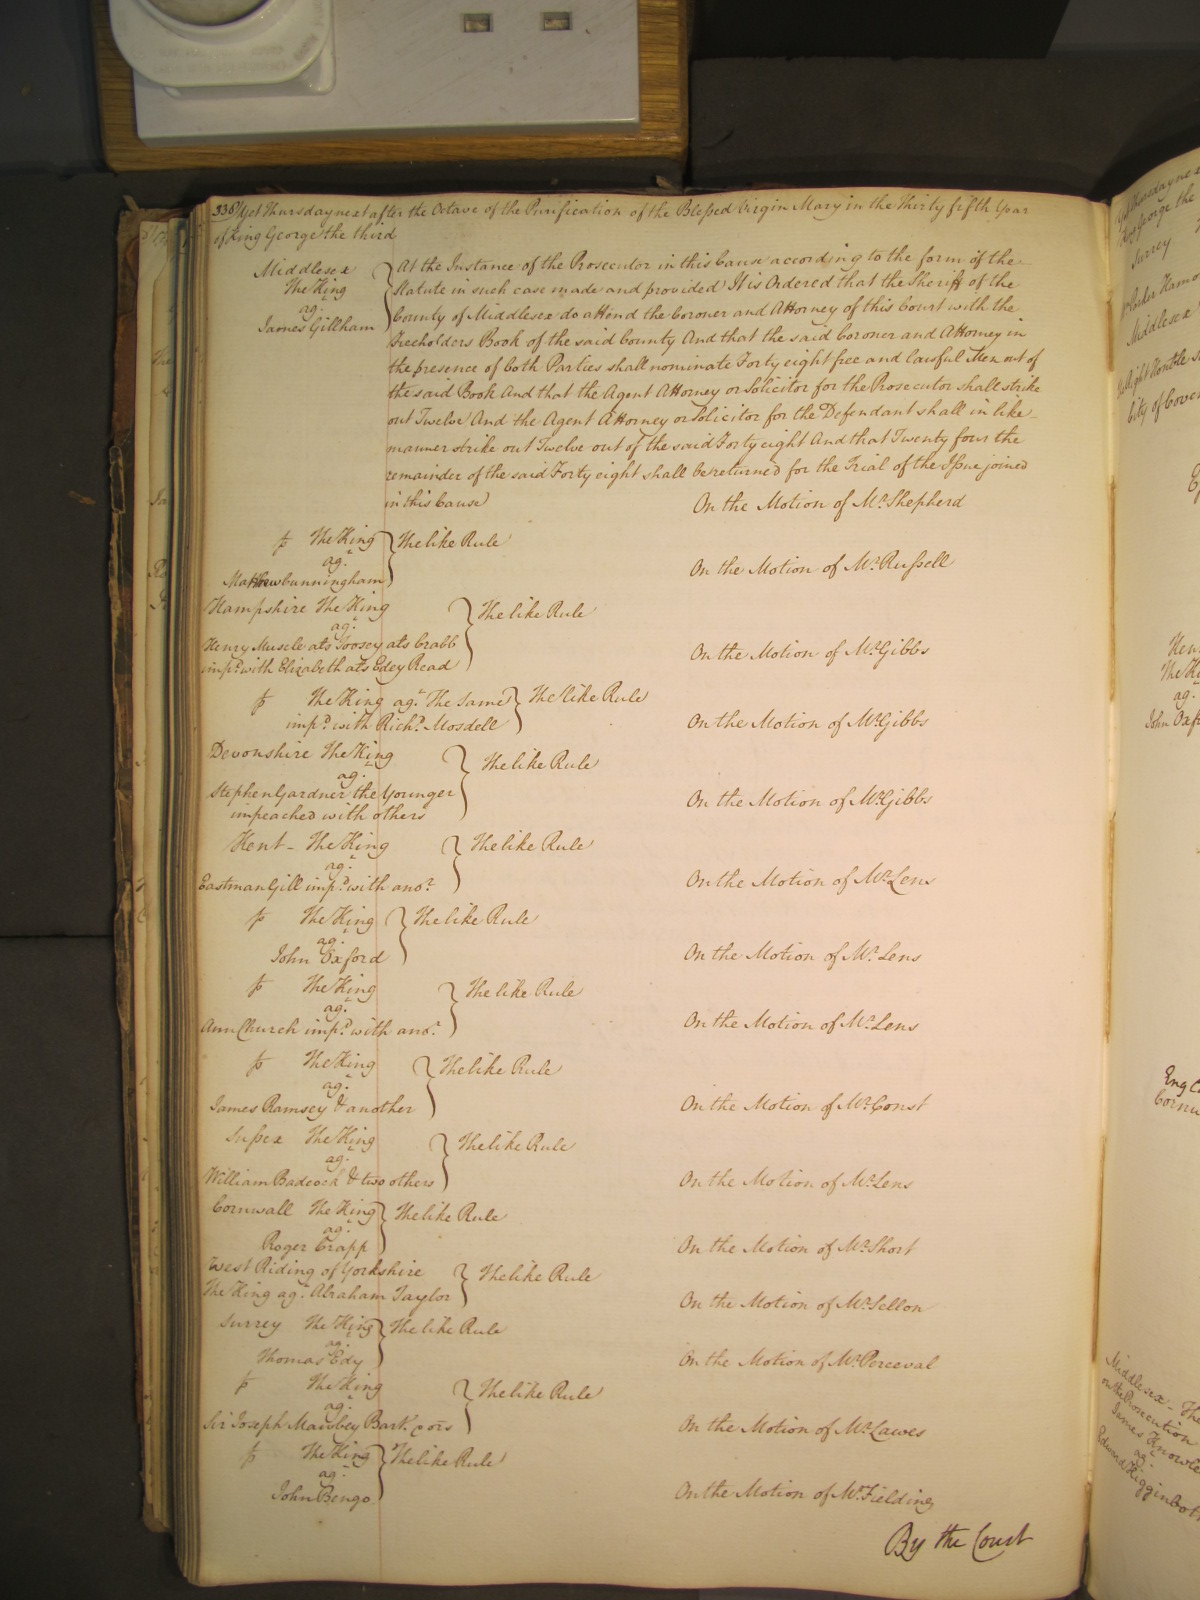 338 Yet Thursday next after the Octave of the Purification of the Blessed Virgin Mary in the Thirty fifth Year
of King George the third
Middlesex
The King
agt
James Gillham
At the Instance of the Prosecutor in this Cause according to the form of the
Statute in such case made and provided It is Ordered that the Sheriff of the
County of Middlesex do attend the Coroner and Attorney of this Court with the
Freeholders Book of the said County And that the said Coroner and Attorney in
the presence of both Parties shall nominate Forty eight free and lawful Men out of
the said Book And that the Agent Attorney or Solicitor for the Prosecutor shall strike
out Twelve And the Agent Attorney or Solicitor for the Defendant shall in like
manner strike out Twelve out of the said Forty eight And that Twenty four the
remainder of the said Forty eight shall be returned for the Trial of the Issue joined
in this Cause
On the Motion of Mr. Shepherd
The King
agt
Matthew Cunningham
The like Rule
On the Motion of Mr. Russell
Hampshire The King
agt
Henry Muscle ats Toosey ats Crabb
impd. with Elizabeth ats Edey Read
The like Rule
On the Motion of Mr. Gibbs
The King agt. The same
impd. with Richd. Mosdell
The like Rule
On the Motion of Mr. Gibbs
Devonshire The King
agt
Stephen Gardner the Younger
impeached with others
The like Rule
On the Motion of Mr. Gibbs
Kent - The King
agt
Eastman Gill impd. with anor.
The like Rule
On the Motion of Mr. Lens
The King
agt
John Oxford
The like Rule
On the Motion of Mr. Lens
The King
agt
Ann Church impd. with anor.
The like Rule
On the Motion of Mr. Lens
The King
agt
James Ramsey & another
The like Rule
On the Motion of Mr. Const
Sussex The King
agt
William Badcock & two others
The like Rule
On the Motion of Mr. Lens
Cornwall The King
agt
Roger Crapp
The like Rule
On the Motion of Mr. Short
West Riding of Yorkshire
The King agt. Abraham Taylor
The like Rule
On the Motion of Mr. Sellon
Surrey The King
agt
Thomas Edy
The like Rule
On the Motion of Mr. Perceval
The King
agt
Sir Joseph Mawbey Bart.
The like Rule
On the Motion of Mr. Lawes
The King
agt
John Bengo
The like Rule
On the Motion of Mr. Fielding
By the Court